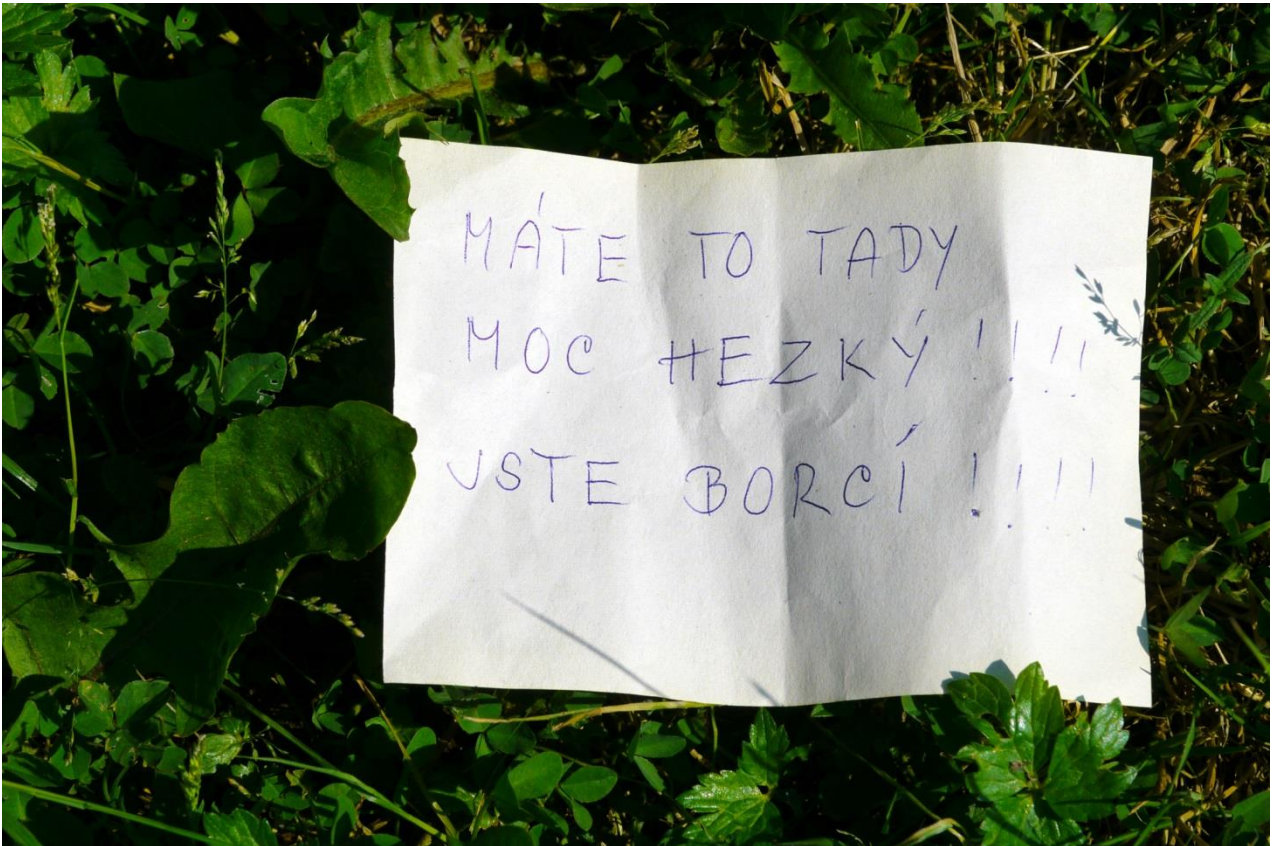 MÁTE TO TADY
MOC HEZKÝ !!!!
JSTE BORCÍ !!!!